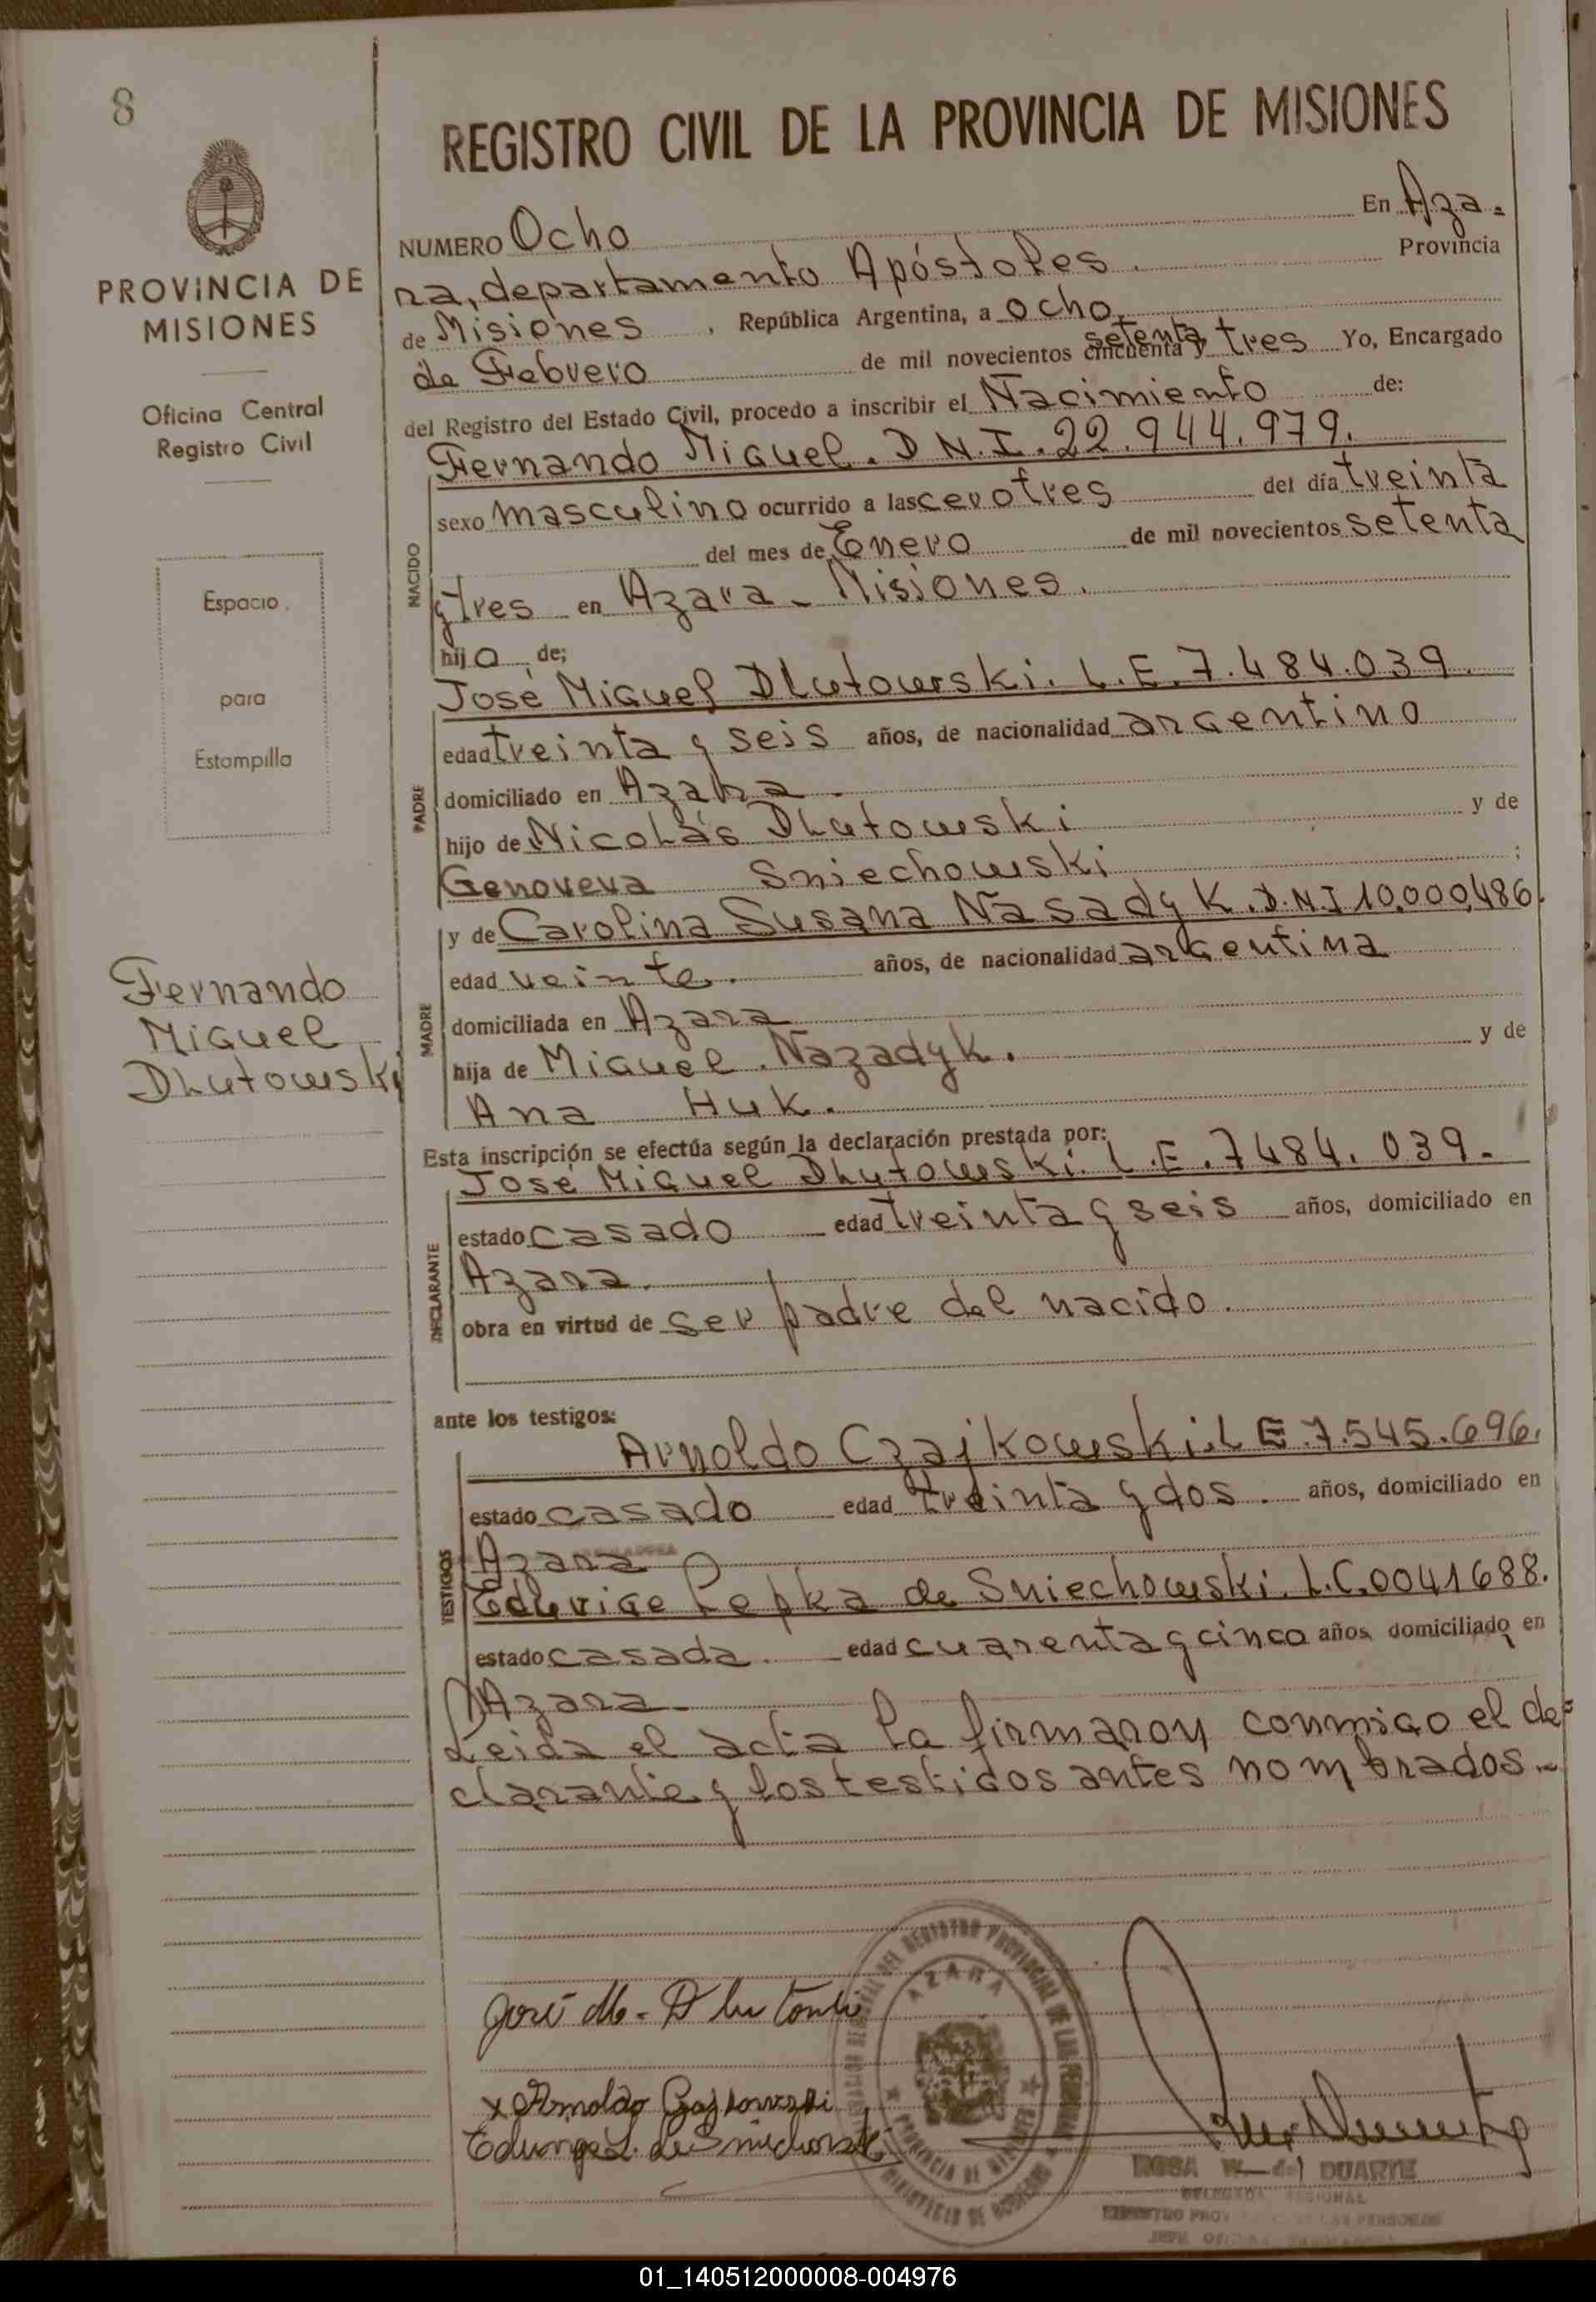 8
PROVINCIA DE
MISIONES
Oficina Central
Registro Civil
Espacio
para
Estampilla
Fernando
Miguel
Dlutowski
REGISTRO CIVIL DE LA PROVINCIA DE MISIONES
NUMERO Ocho En Aza=
ra, departamento Apóstoles. Provincia
de Misiones, República Argentina, a ocho,
de Febrero de mil novecientos cincuenta y setenta tres Yo, Encargado
del Registro del Estado Civil, procedo a inscribir el Nacimiento de:
Fernando Miguel. D N.I. 22.944.979.
NACIDO
sexo masculino ocurrido a las cero tres del día treinta
del mes de Enero de mil novecientos setenta
y tres en Azara - Misiones.
hijo de;
José Miguel Dlutowski. L.E. 7.484.039.
PADRE
edad treinta y seis años, de nacionalidad argentino
domiciliado en Azara.
hijo de Nicolás Dlutowski y de
Genoveva Sniechowski ;
y de Carolina Susana Nasadyk. D.N.I 10.000,486.
MADRE
edad veinte. años, de nacionalidad argentina
domiciliada en Azara
hija de Miguel. Nazadyk. y de
Ana Huk.
Esta inscripción se efectúa según la declaración prestada por:
José Miguel Dlutowski. L.E. 7484.039.
DECLARANTE
estado casado edad treinta y seis años, domiciliado en
Azara.
obra en virtud de ser padre del nacido.
ante los testigos:
Arnoldo Czajkowski. L E. 7.545.696.
TESTIGOS
estado casado edad treinta y dos. años, domiciliado en
Azara
Eduvige Lepka de Sniechowski. L.C. 0041688.
estado casada. edad cuarenta y cinco años domiciliado en
Azara
Leida el acta la firmaron conmigo el de=
clarante y los testidos antes nombrados.-
José M. Dlutowski
x Arnoldo Czajkowski
Eduvige L. de Sniechowski
AZARA
PROVINCIA DE MISIONES
MINISTERIO DE GOBIERNO
ROSA W. de DUARTE
01_140512000008-004976